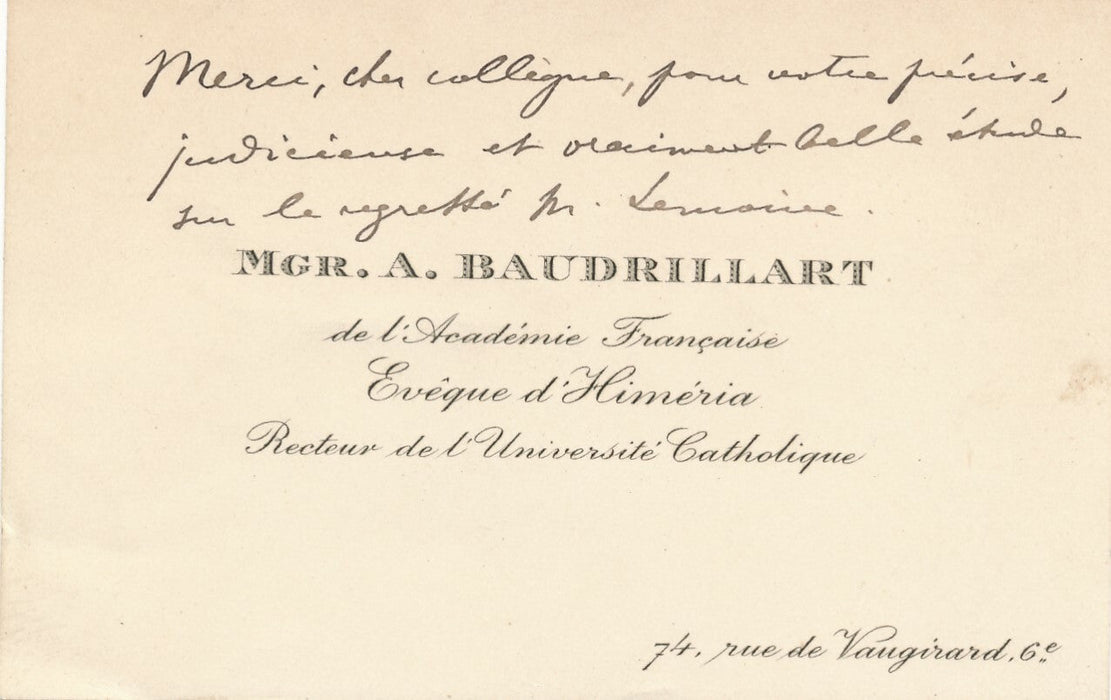 Merci, cher collègue, pour votre précise,
judicieuse et vraiment belle étude
sur le regretté M. Lemoine.
MGR. A. BAUDRILLART
de l'Académie Française
Evêque d'Himéria
Recteur de l'Université Catholique
74, rue de Vaugirard. 6e